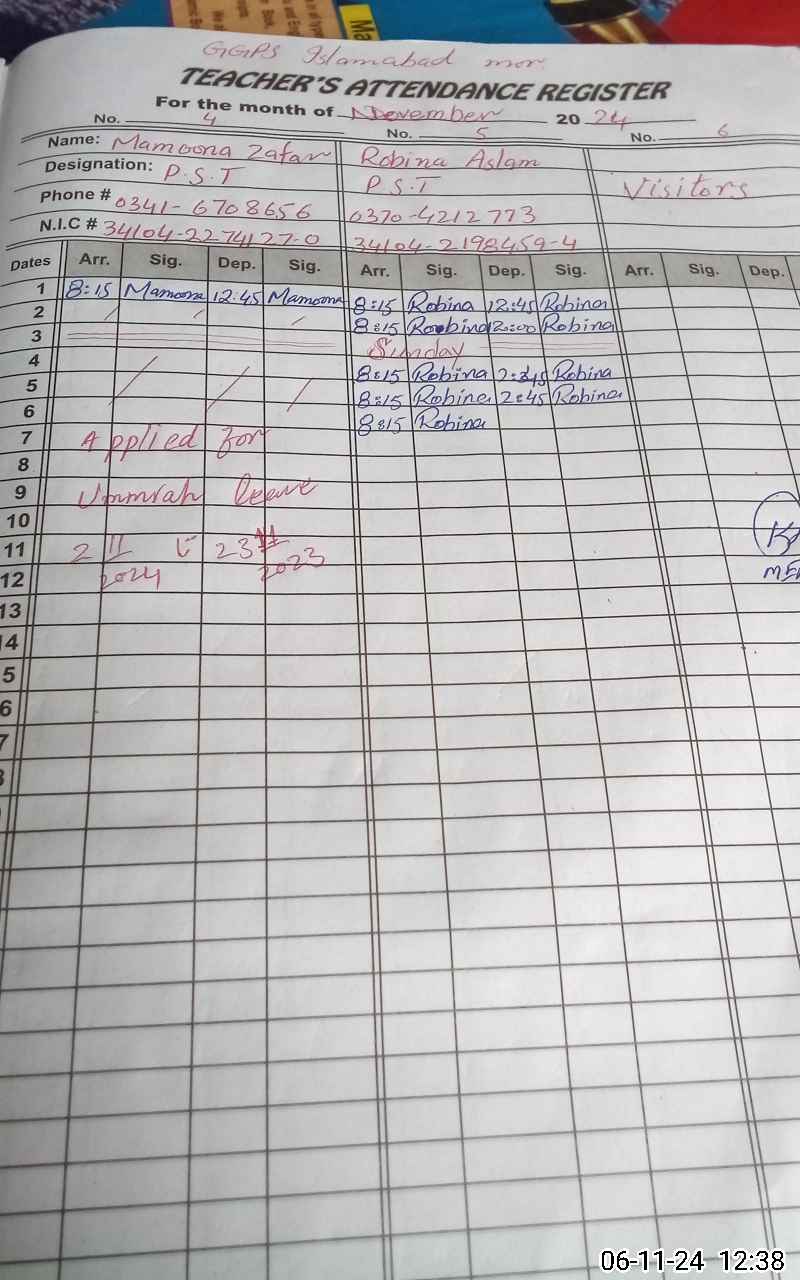 GGPS Islamabad mor.
TEACHER'S ATTENDANCE REGISTER
For the month of November 2024
No. 4 No. 5 No. 6
Name: Mamoona Zafar Robina Aslam
Designation: P.S.T P.S.T Visitors
Phone # 0341-6708656 0370-4212773
N.I.C # 34104-2274127-0 34104-2198459-4
Dates Arr. Sig. Dep. Sig. Arr. Sig. Dep. Sig. Arr. Sig. Dep.
1 8:15 Mamoona 12:45 Mamoona 8:15 Robina 12:45 Robina
2 8:15 Robina 12:00 Robina
3 Sunday
4 8:15 Robina Robina
5 8:15 Robina 2:45 Robina
6 8:15 Robina
7 Applied for
8
9 Ummrah leave
10
11 2 11 23 11
12 2024 2023
13
14
5
6
7
06-11-24 12:38